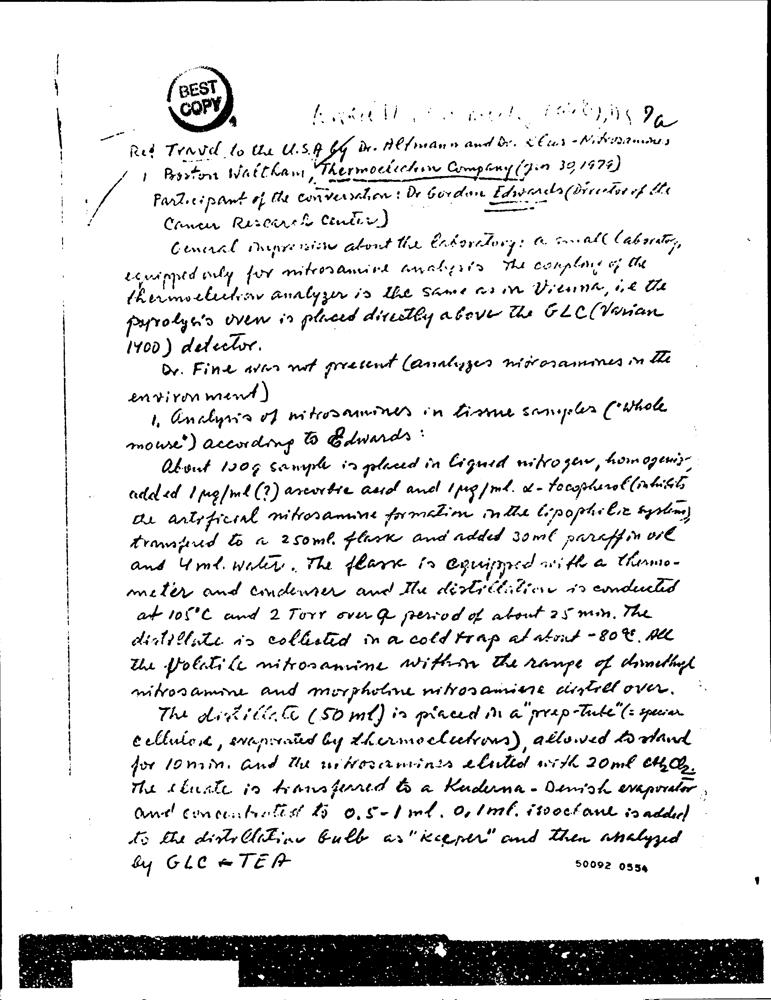 BEST
COPY
9a
Ref Travel to the U.S.A by Dr. Altmann and Dr. - Nitrosamines
1 Boston Waltham, Thermoelectron Company (Jan 30, 1979)
Participant of the conversation: Dr Gordon Edwards (Director of the
Cancer Research Center)
General impression about the laboratory: a small laboratory,
equipped only for nitrosamine analysis The coupling of the
thermoelectron analyzer is the same as in Vienna, i.e the
pyrolysis oven is placed directly above the GLC (Varian
1400) detector.
Dr. Fine was not present (analyzes nitrosamines in the
environment)
1. Analysis of nitrosamines in tissue samples ("whole
mouse") according to Edwards:
About 120g sample is placed in liquid nitrogen, homogeniz.
added 1 µg/ml (?) ascorbic acid and 1 µg/ml. α-tocopherol (inhibits
the artificial nitrosamine formation in the lipophilic system),
transfered to a 250ml. flask and added 30ml paraffin oil
and 4 ml. water. The flask is equipped with a thermo-
meter and condenser and the distillation is conducted
at 105°C and 2 Torr over a period of about 25 min. The
distillate is collected in a cold trap at about -80°C. All
the volatile nitrosamine within the range of dimethyl
nitrosamine and morpholine nitrosamiene distill over.
The distillate (50 ml) is placed in a "prep-Tube" (= special
cellulose, evaporated by thermoelectrons), allowed to stand
for 10 min. and the nitrosamines eluted with 20ml CH2Cl2.
The eluate is transferred to a Kuderna-Denish evaporator
and concentrated to 0.5-1 ml. 0.1ml. isooctane is added
to the distillation bulb as "Keeper" and then analyzed
by GLC TEA
50092 0554